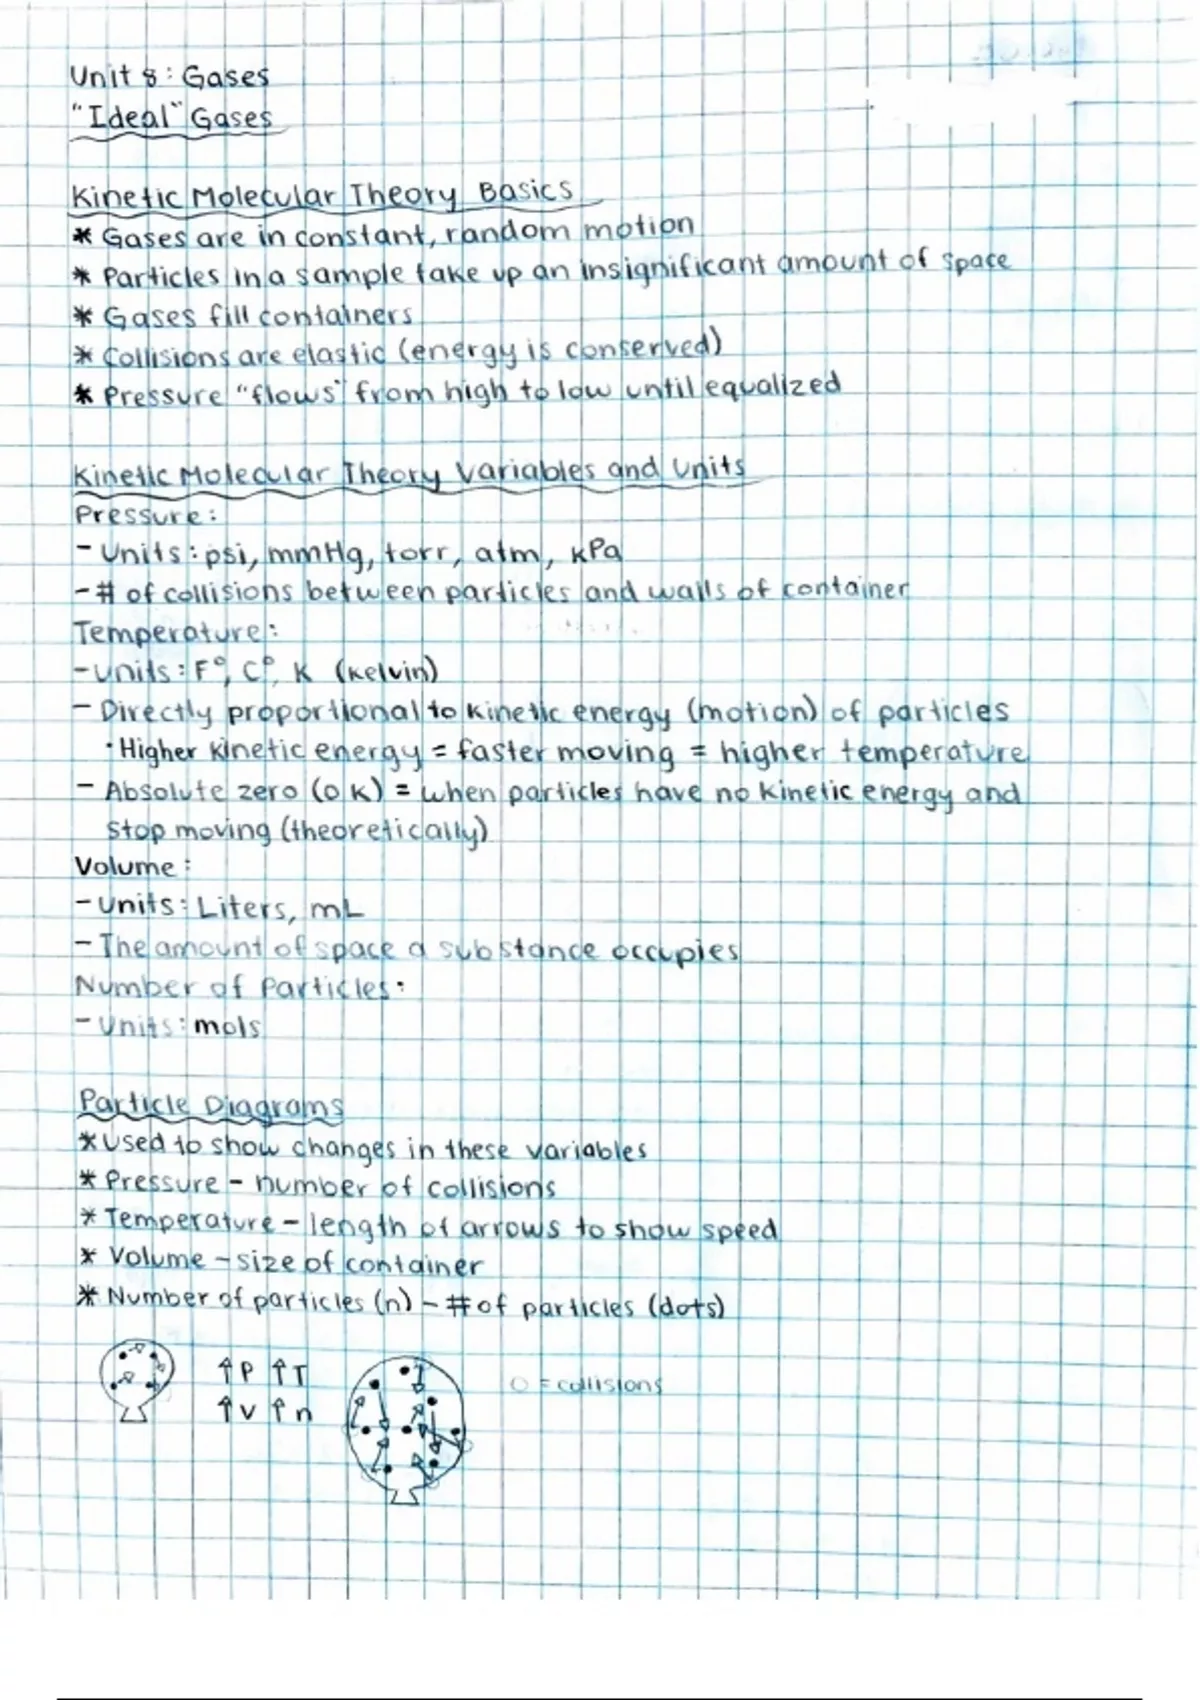 Unit 8: Gases
"Ideal" Gases
Kinetic Molecular Theory Basics
* Gases are in constant, random motion
* Particles in a sample take up an insignificant amount of space
* Gases fill containers
* Collisions are elastic (energy is conserved)
* Pressure "flows" from high to low until equalized
Kinetic Molecular Theory Variables and Units
Pressure:
- Units: psi, mmHg, torr, atm, kPa
- # of collisions between particles and walls of container
Temperature:
- Units: F°, C°, K (Kelvin)
- Directly proportional to kinetic energy (motion) of particles
· Higher kinetic energy = faster moving = higher temperature
- Absolute zero (0 K) = when particles have no kinetic energy and
stop moving (theoretically)
Volume:
- Units: Liters, mL
- The amount of space a substance occupies
Number of Particles:
- Units: mols
Particle Diagrams
* Used to show changes in these variables
* Pressure - number of collisions
* Temperature - length of arrows to show speed
* Volume - size of container
* Number of particles (n) - # of particles (dots)
↑P ↑T
↑V ↑n
O = collisions